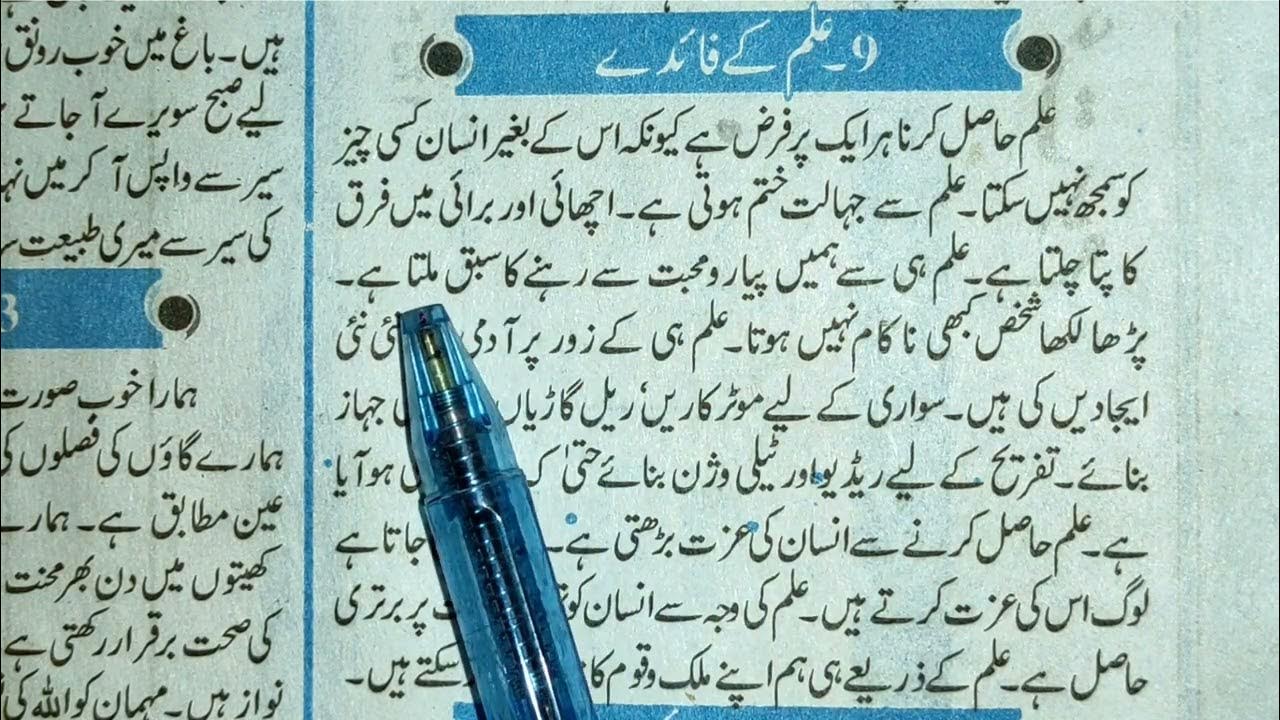 9۔علم کے فائدے
علم حاصل کرنا ہر ایک پر فرض ہے کیونکہ اس کے بغیر انسان کسی چیز
کو سمجھ نہیں سکتا۔ علم سے جہالت ختم ہوتی ہے۔ اچھائی اور برائی میں فرق
کا پتا چلتا ہے۔ علم ہی سے ہمیں پیار و محبت سے رہنے کا سبق ملتا ہے۔
پڑھا لکھا شخص کبھی ناکام نہیں ہوتا۔ علم ہی کے زور پر آدمی نئی
ایجادیں کی ہیں۔ سواری کے لیے موٹر کاریں، ریل گاڑیاں جہاز
بنائے۔ تفریح کے لیے ریڈیو اور ٹیلی وژن بنائے حتیٰ ہو آیا
ہے۔ علم حاصل کرنے سے انسان کی عزت بڑھتی ہے۔ جاتا ہے
لوگ اس کی عزت کرتے ہیں۔ علم کی وجہ سے انسان کو پر برتری
حاصل ہے۔ علم کے ذریعے ہی ہم اپنے ملک و قوم کا سکتے ہیں۔
ہیں۔ باغ میں خوب رونق
لیے صبح سویرے آ جاتے
سیر سے واپس آ کر میں
کی سیر سے میری طبیعت
ہمارا خوب صورت
ہمارے گاؤں کی فصلوں کی
عین مطابق ہے۔ ہمارے
کھیتوں میں دن بھر محنت
کی صحت برقرار رکھتی ہے
نواز ہیں۔ مہمان کو اللہ کی